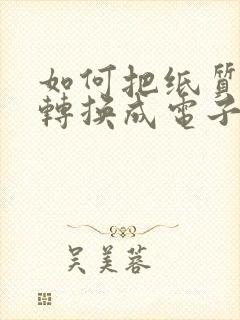 如何把纸質
轉換成電子
吴美蓉